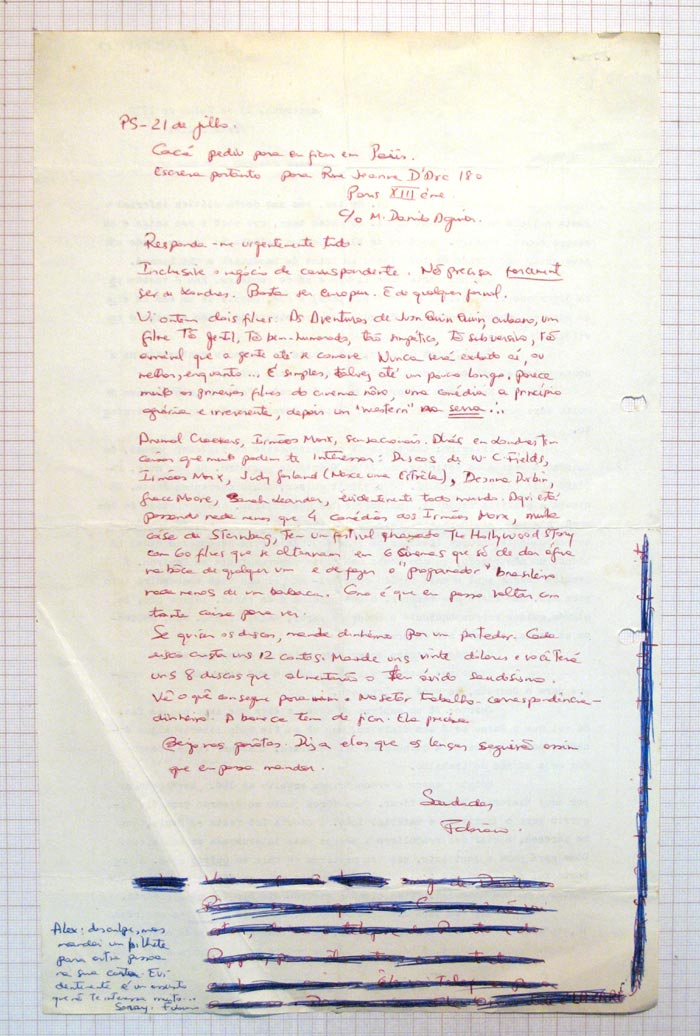 PS - 21 de julho.
Cacá pediu para eu ficar em Paris.
Escreva portanto para Rue Jeanne D'Arc 180
Paris XIII ème
c/o M. Danilo Aguiar.
Responda-me urgentemente tudo.
Inclusive o negócio de correspondente. Não precisa
ser de Londres. Basta ser Europeu. E de qualquer jornal.
Vi ontem dois filmes: As Aventuras de Juan Quin Quin, cubano, um
filme tão gentil, tão bem-humorado, tão simpático, tão subversivo, tão
amável que a gente até se comove. Nunca será exibido aí, ou
melhor, enquanto... É simples, talvez até um pouco longo, parece
muito os primeiros filmes do cinema nôvo, uma comédia a princípio
agrária e irreverente, depois um "western" na serra...
Animal Crackers, Irmãos Marx, sensacionais. Aliás em Londres tem
coisas que muito podem te interessar: Discos de W. C. Fields,
Irmãos Marx, Judy Garland (Nasce uma Estrêla), Deanna Durbin,
Grace Moore, Sarah Leander, evidentemente todo mundo. Aqui está
passando nada menos que 4 comédias dos Irmãos Marx, muita
coisa de Sternberg, tem um festival chamado The Hollywood Story
com 60 filmes que se alternam em 6 cinemas que só de dar água
na bôca de qualquer um e de fazer o "programador" brasileiro
nada menos de um babaca. Como é que eu posso voltar com
tanta coisa para ver.
Se quiser os discos, mande dinheiro por um portador. Cada
disco custa uns 12 contos. Mande uns vinte dólares e você terá
uns 8 discos que alimentarão o teu ávido saudosismo.
Vê o quê consegue para mim. No setor trabalho - correspondência -
dinheiro. A barca tem de ficar. Ela precisa
Beijo nas garôtas. Diga a elas que os lenços seguirão assim
que eu possa mandar.
Saudades
Fabiano.
Alex: desculpe, mas
mandei um bilhete
para outra pessoa
na sua carta. Evi
dentemente é um assunto
que não te interessa muito...
Sorry. Fabiano